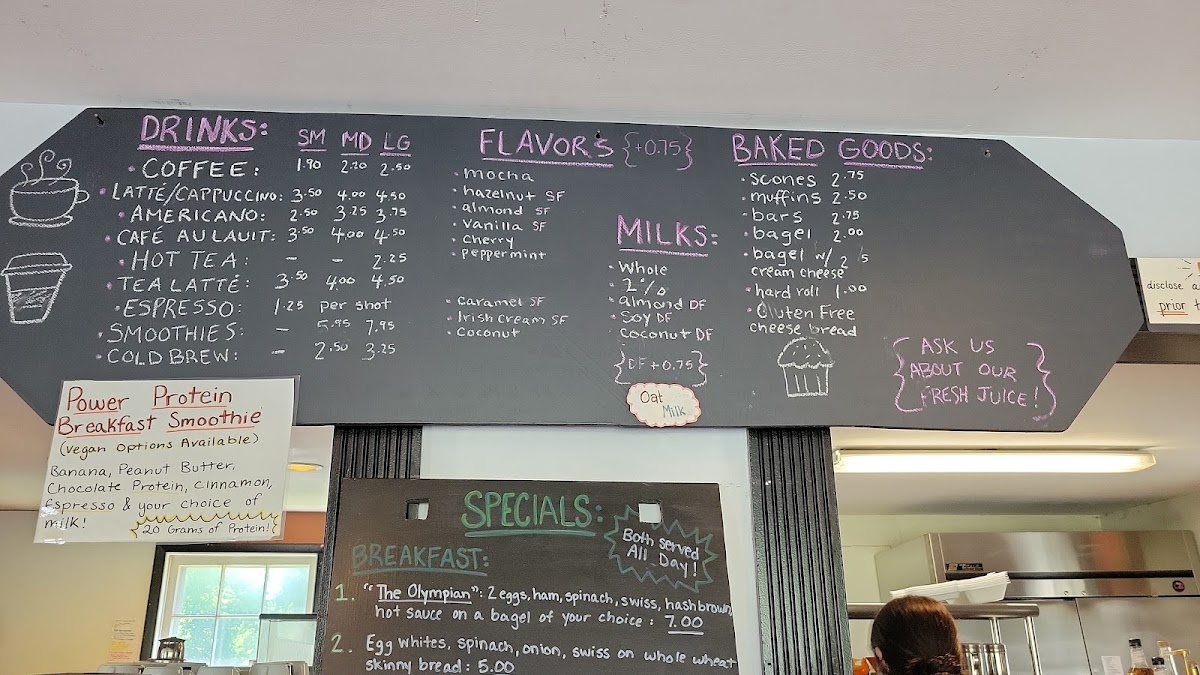 DRINKS: SM MD LG
• COFFEE: 1.90 2.20 2.50
• LATTÉ/CAPPUCCINO: 3.50 4.00 4.50
• AMERICANO: 2.50 3.25 3.75
• CAFÉ AU LAUIT: 3.50 4.00 4.50
• HOT TEA: – – 2.25
• TEA LATTÉ: 3.50 4.00 4.50
• ESPRESSO: 1.25 per shot
• SMOOTHIES: – 5.95 7.95
• COLD BREW: – 2.50 3.25
FLAVORS {+0.75}
• mocha
• hazelnut SF
• almond SF
• vanilla SF
• cherry
• peppermint
• caramel SF
• Irish cream SF
• Coconut
MILKS:
• Whole
• 2%
• almond DF
• Soy DF
• coconut DF
{DF +0.75}
Oat
Milk
BAKED GOODS:
• scones 2.75
• muffins 2.50
• bars 2.75
• bagel 2.00
• bagel w/
cream cheese
• hard roll 1.00
• Gluten Free
cheese bread
{ASK US
ABOUT OUR
FRESH JUICE!}
disclose
prior
Power Protein
Breakfast Smoothie
(vegan options Available)
Banana, Peanut Butter,
Chocolate Protein, cinnamon,
Espresso & your choice of
milk!
20 Grams of Protein!
SPECIALS:
Both served
All Day!
BREAKFAST:
1. "The Olympian": 2 eggs, ham, spinach, swiss, hashbrown
hot sauce on a bagel of your choice: 7.00
2. Egg whites, spinach, onion, swiss on whole wheat
skinny bread: 5.00